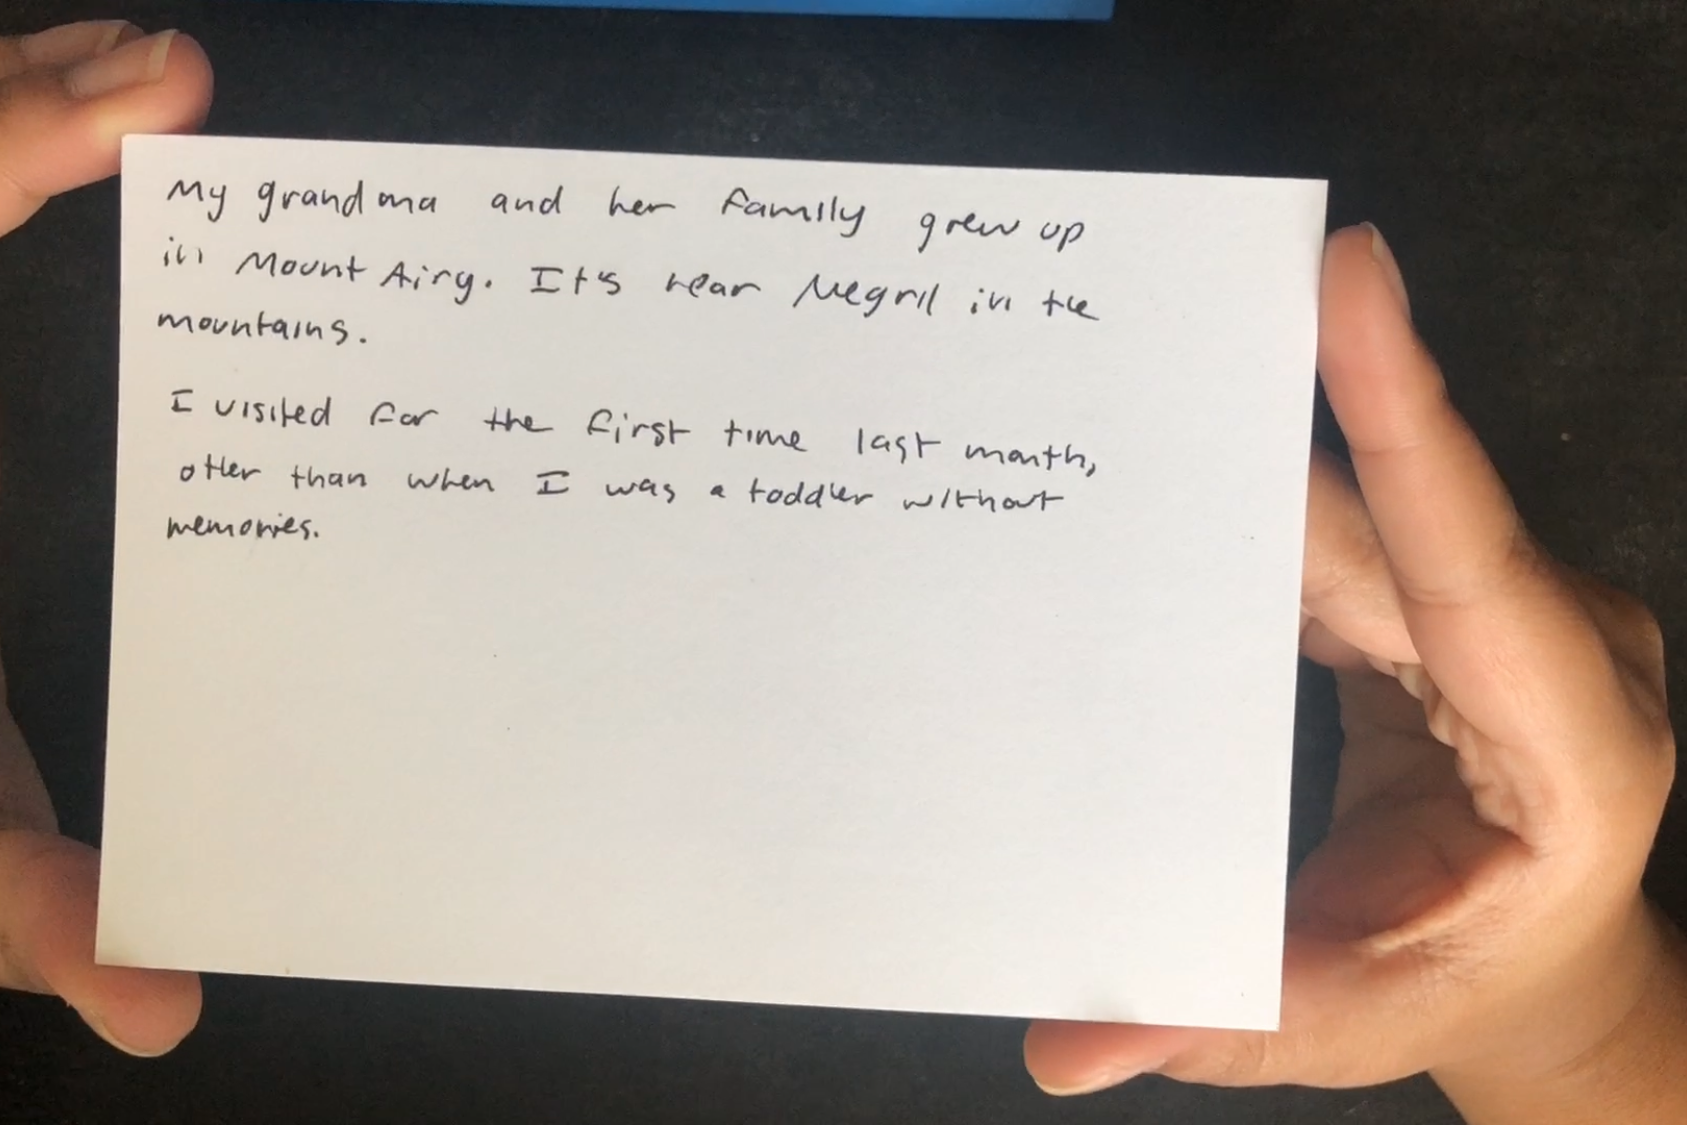 My grandma and her family grew up
in Mount Airy. It's near Negril in the
mountains.
I visited for the first time last month,
other than when I was a toddler without
memories.